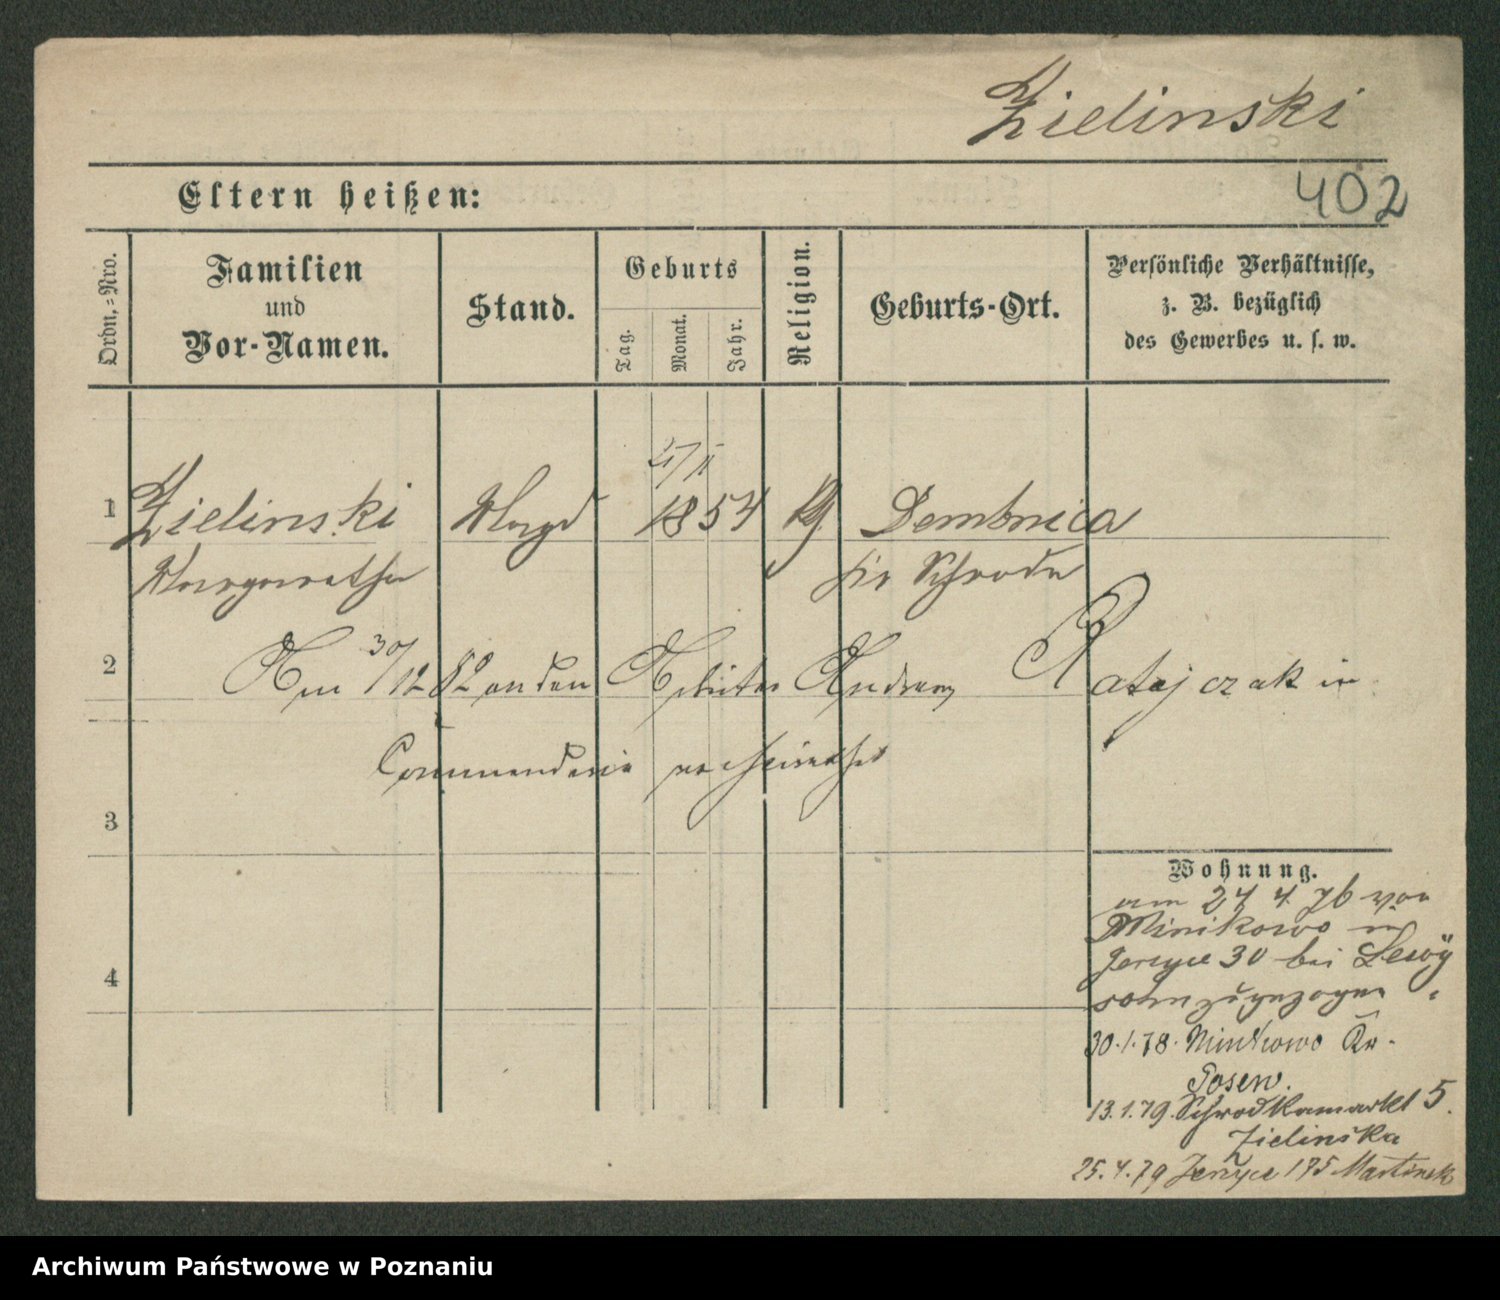 Zielinski
Eltern heißen:
402
Ordn.=Nro.
Familien
und
Vor-Namen.
Stand.
Geburts
Tag.
Monat.
Jahr.
Religion.
Geburts-Ort.
Persönliche Verhältnisse,
z. B. bezüglich
des Gewerbes u. s. w.
1
Zielinski Magd 1854 Dembnica
Margaretha Schroda
2
Am 30/12 82 an den Arbeiter Andreas Ratajczak in
Commenderie verheirathet
3
Wohnung.
am 24 4 76 von
Minikowo in
Jerzyce 30 bei Lewy
zugezogen
4
30.1.78. Minikowo Kr.
Posen.
13.1.79. Schrodkamarkt 5.
Zielinska
25.4.79 Jerzyce 175 Martinek
Archiwum Państwowe w Poznaniu